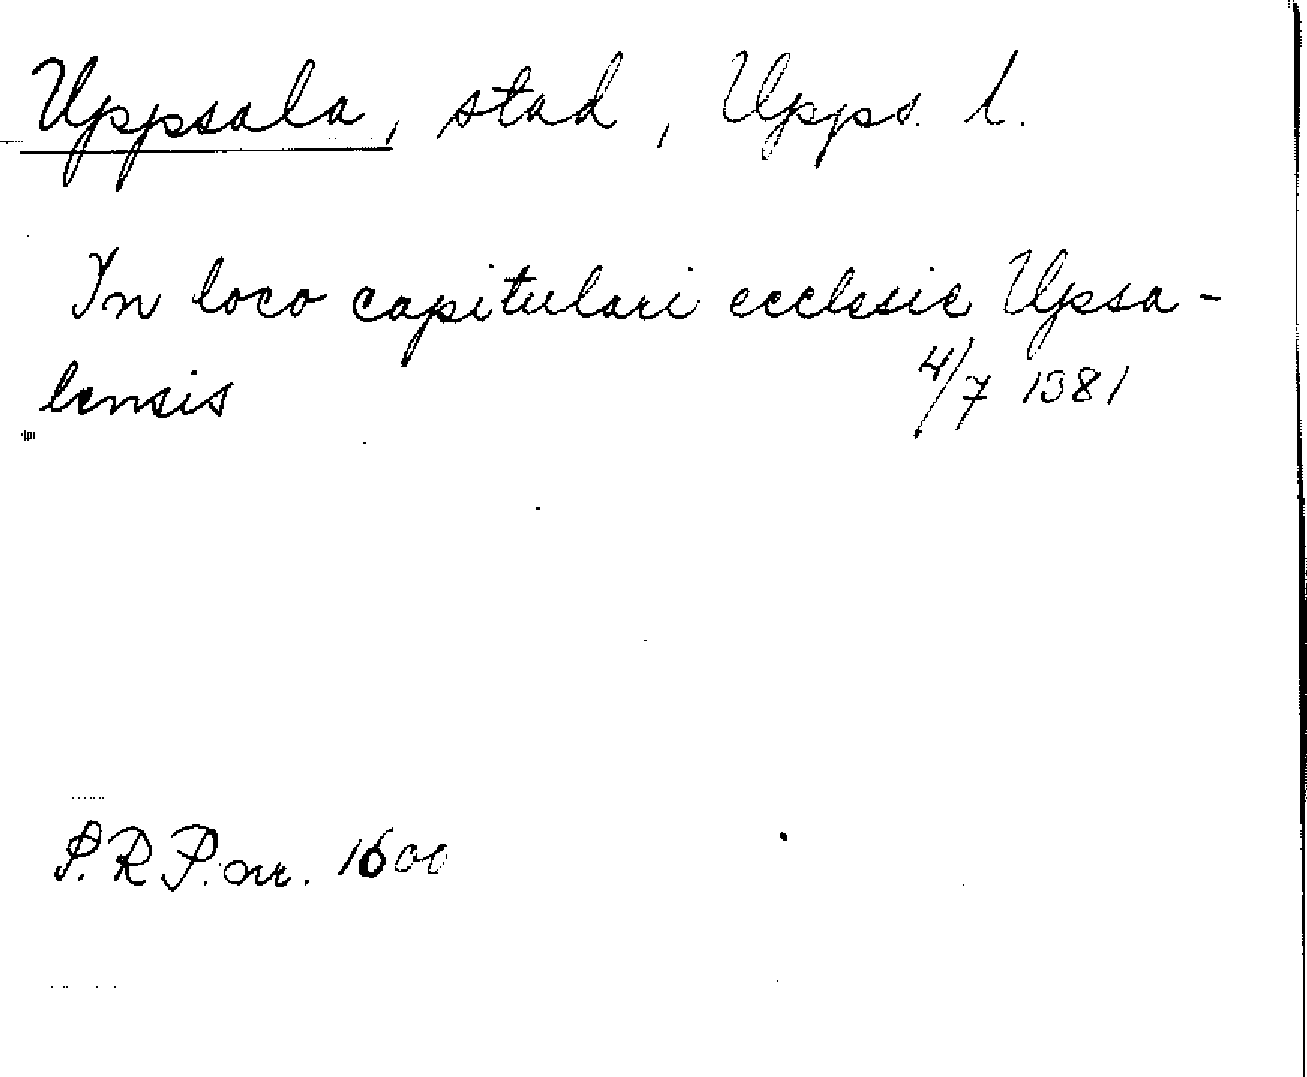 Uppsala, stad, Upps. l.
In loco capitulari ecclesie Upsa-
lensis 4/7 1381
S.R.P. nr. 1600